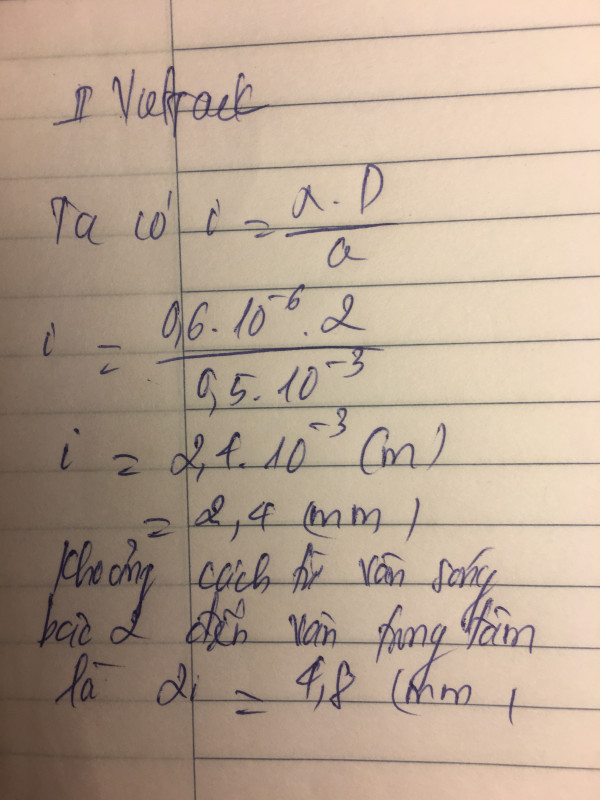 II Vietrack
Ta có i = λ . D / a
i = 0,6 . 10⁻⁶ . 2 / 0,5 . 10⁻³
i = 2,4 . 10⁻³ (m)
= 2,4 (mm)
Khoảng cách từ vân sáng
bậc 2 đến vân trung tâm
là 2i = 4,8 (mm)